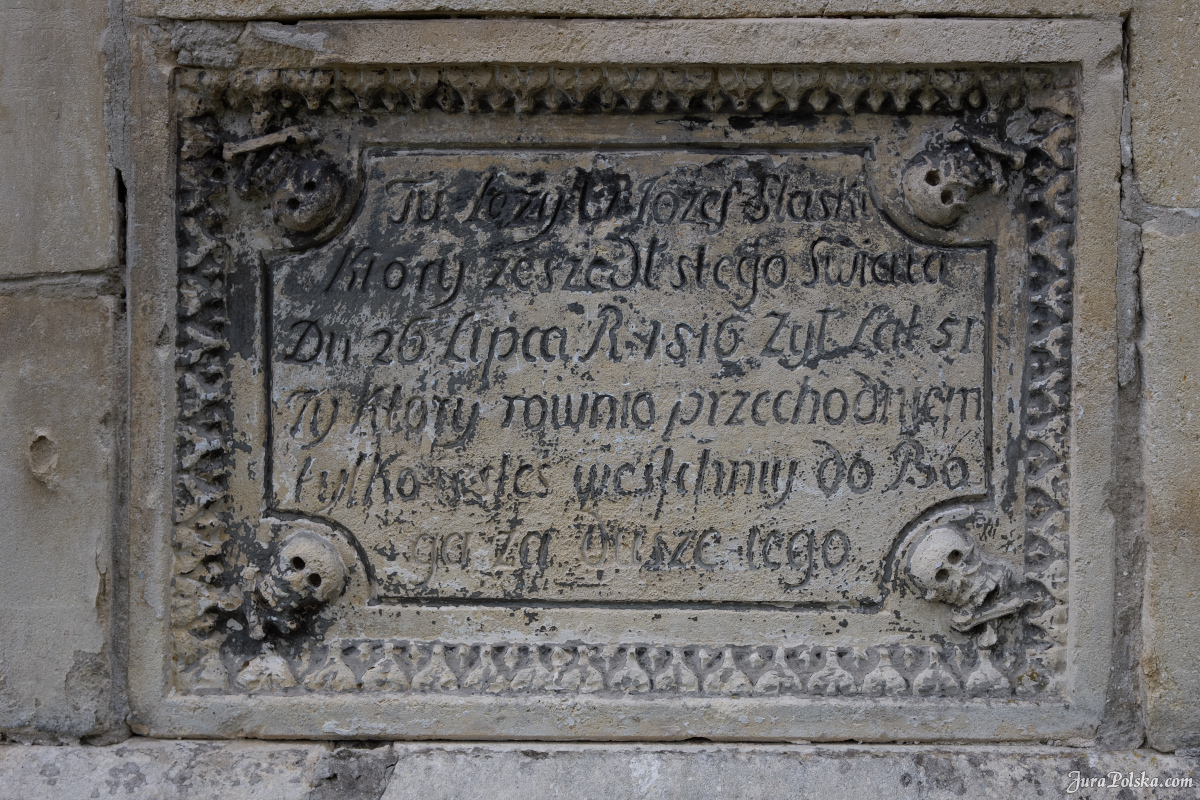 Tu Leży Jozef Slaski
Ktory zeszedł stego Swiata
Dn 26 Lipca R 1816 Zył Lat 51
Ty Ktory rownio przechodniem
tylko iestes westchniy do Bo
ga Za dusze tego
JuraPolska.com